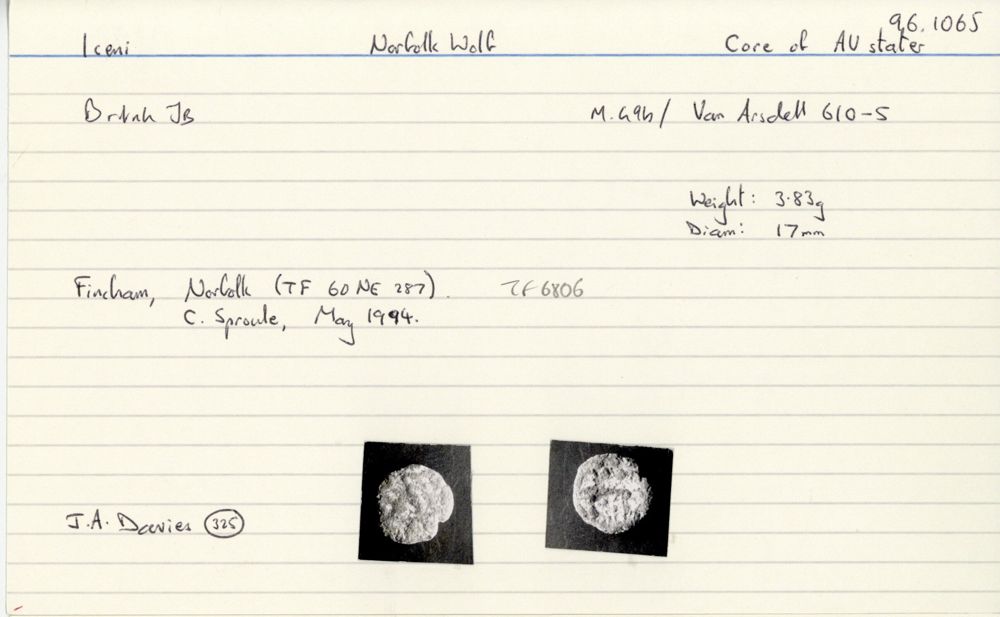 96.1065
Iceni Norfolk Wolf Core of AU stater
British JB M.49b/ Van Arsdell 610-5
Weight: 3.83g
Diam: 17mm
Fincham, Norfolk (TF 60 NE 287). TF6806
C. Sproule, May 1994.
J.A. Davies 325